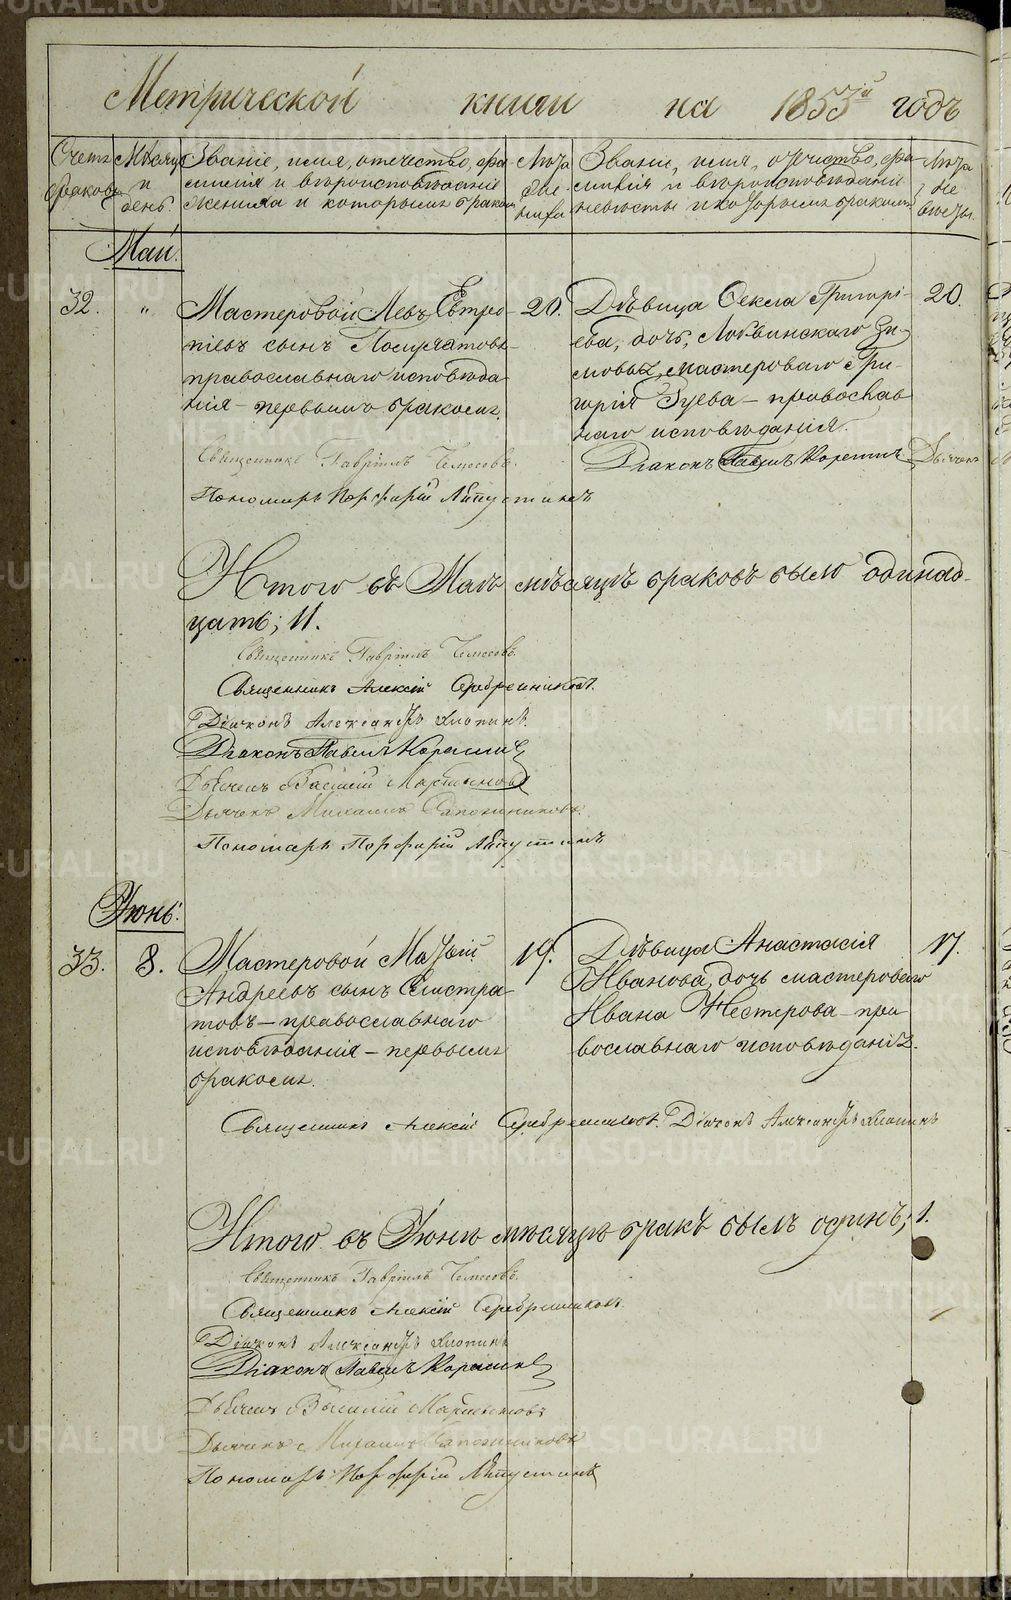 Метрической книги на 1853й годъ
Счетъ браковъ
Мѣсяцъ и день.
Званіе, имя, отечество, фамилія и вѣроисповѣданіе жениха и которымъ бракомъ
Лѣта жениха
Званіе, имя, отчество, фамилія и вѣроисповѣданіе невѣсты и которымъ бракомъ
Лѣта невѣсты.
Май.
32. "
Мастеровой Левъ Евтро-
піевъ сынъ
православнаго исповѣда
нія – первымъ бракомъ.
20.
Дѣвица Ѳекла Григорі-
ева, дочь,
мастероваго Гри-
горія Зуева – православ
наго исповѣданія.
20.
Священникъ Гавріилъ
Діаконъ Павелъ
Дьячекъ
Пономарь Порфирій
Итого въ Маѣ мѣсяцѣ браковъ было одинад-
цать; 11.
Священникъ Гавріилъ
Священникъ Алексій Серебренниковъ.
Діаконъ Александръ Хлопинъ.
Діаконъ Павелъ
Дьячекъ Василій
Дьячекъ Михаилъ Сапожниковъ.
Пономарь Порфирій
Іюнь:
33. 8.
Мастеровой Матѳій
Андреевъ сынъ Елистра
товъ – православнаго
исповѣданія – первымъ
бракомъ.
19.
Дѣвица Анастасія
Иванова, дочь мастероваго
Ивана Нестерова – пра
вославнаго исповѣданія.
17.
Священникъ Алексій Серебренниковъ. Діаконъ Александръ Хлопинъ
Итого въ Іюнѣ мѣсяцѣ бракъ былъ одинъ; 1.
Священникъ Гавріилъ
Священникъ Алексій Серебренниковъ.
Діаконъ Александръ Хлопинъ
Діаконъ Павелъ
Дьячекъ Василій
Дьячекъ Михаилъ Сапожниковъ
Пономарь Порфирій
METRIKI.GASO-URAL.RU